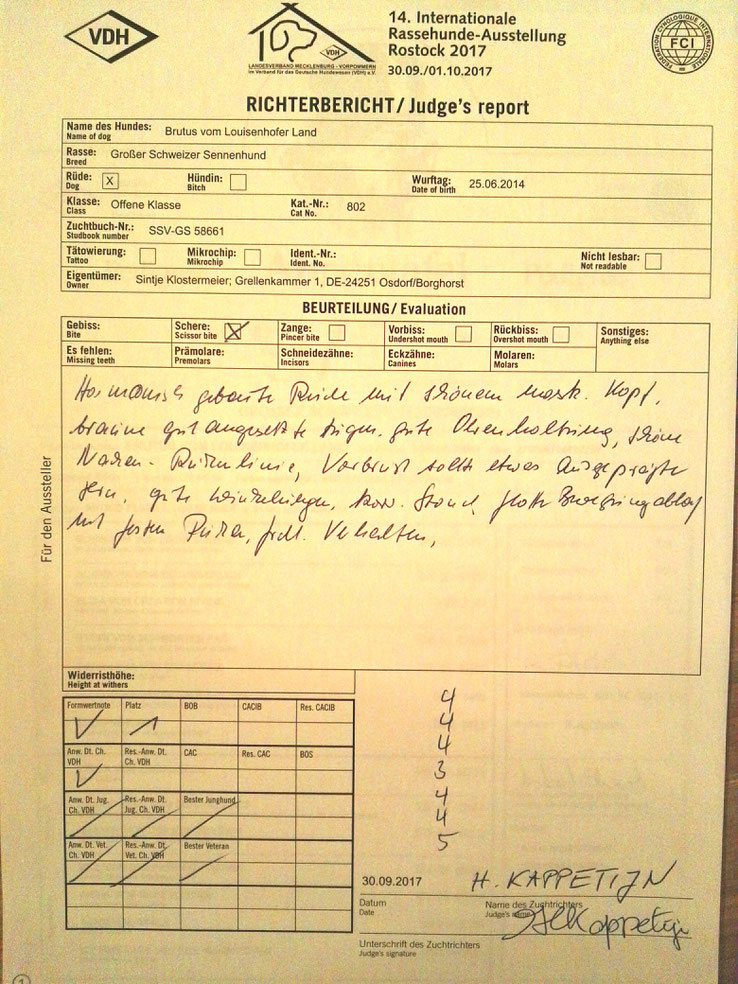 VDH
VDH
LANDESVERBAND MECKLENBURG - VORPOMMERN
im Verband für das Deutsche Hundewesen (VDH) e.V.
14. Internationale
Rassehunde-Ausstellung
Rostock 2017
30.09./01.10.2017
FEDERATION CYNOLOGIQUE INTERNATIONALE
FCI
RICHTERBERICHT / Judge's report
Name des Hundes: Brutus vom Louisenhofer Land
Name of dog
Rasse: Großer Schweizer Sennenhund
Breed
Rüde: X Hündin: Wurftag: 25.06.2014
Dog Bitch Date of birth
Klasse: Offene Klasse Kat.-Nr.: 802
Class Cat No.
Zuchtbuch-Nr.: SSV-GS 58661
Studbook number
Tätowierung: Mikrochip: Ident.-Nr.: Nicht lesbar:
Tattoo Mikrochip Ident. No. Not readable
Eigentümer: Sintje Klostermeier; Grellenkammer 1, DE-24251 Osdorf/Borghorst
Owner
BEURTEILUNG / Evaluation
Gebiss: Schere: Zange: Vorbiss: Rückbiss: Sonstiges:
Bite Scissor bite Pincer bite Undershot mouth Overshot mouth Anything else
Es fehlen: Prämolare: Schneidezähne: Eckzähne: Molaren:
Missing teeth Premolars Incisors Canines Molars
gebaute Rüde mit schönem mask. Kopf,
braune gut angesetzte gute Ohrenhaltung, schöne
Rutenlinie, Vorbrust sollte etwas ausgeprägter
sein, gute Winkelungen, korr. Stand,
mit festen Rücken, Verhalten,
Für den Aussteller
Widerristhöhe:
Height at withers
Formwertnote Platz BOB CACIB Res. CACIB
Anw. Dt. Ch. VDH Res.-Anw. Dt. Ch. VDH CAC Res. CAC BOS
Anw. Dt. Jug. Ch. VDH Res.-Anw. Dt. Jug. Ch. VDH Bester Junghund
Anw. Dt. Vet. Ch. VDH Res.-Anw. Dt. Vet. Ch. VDH Bester Veteran
4
4
4
3
4
4
5
30.09.2017 H. KAPPETIJN
Datum Name des Zuchtrichters
Date Judge's name
HKappetijn
Unterschrift des Zuchtrichters
Judge's signature
1